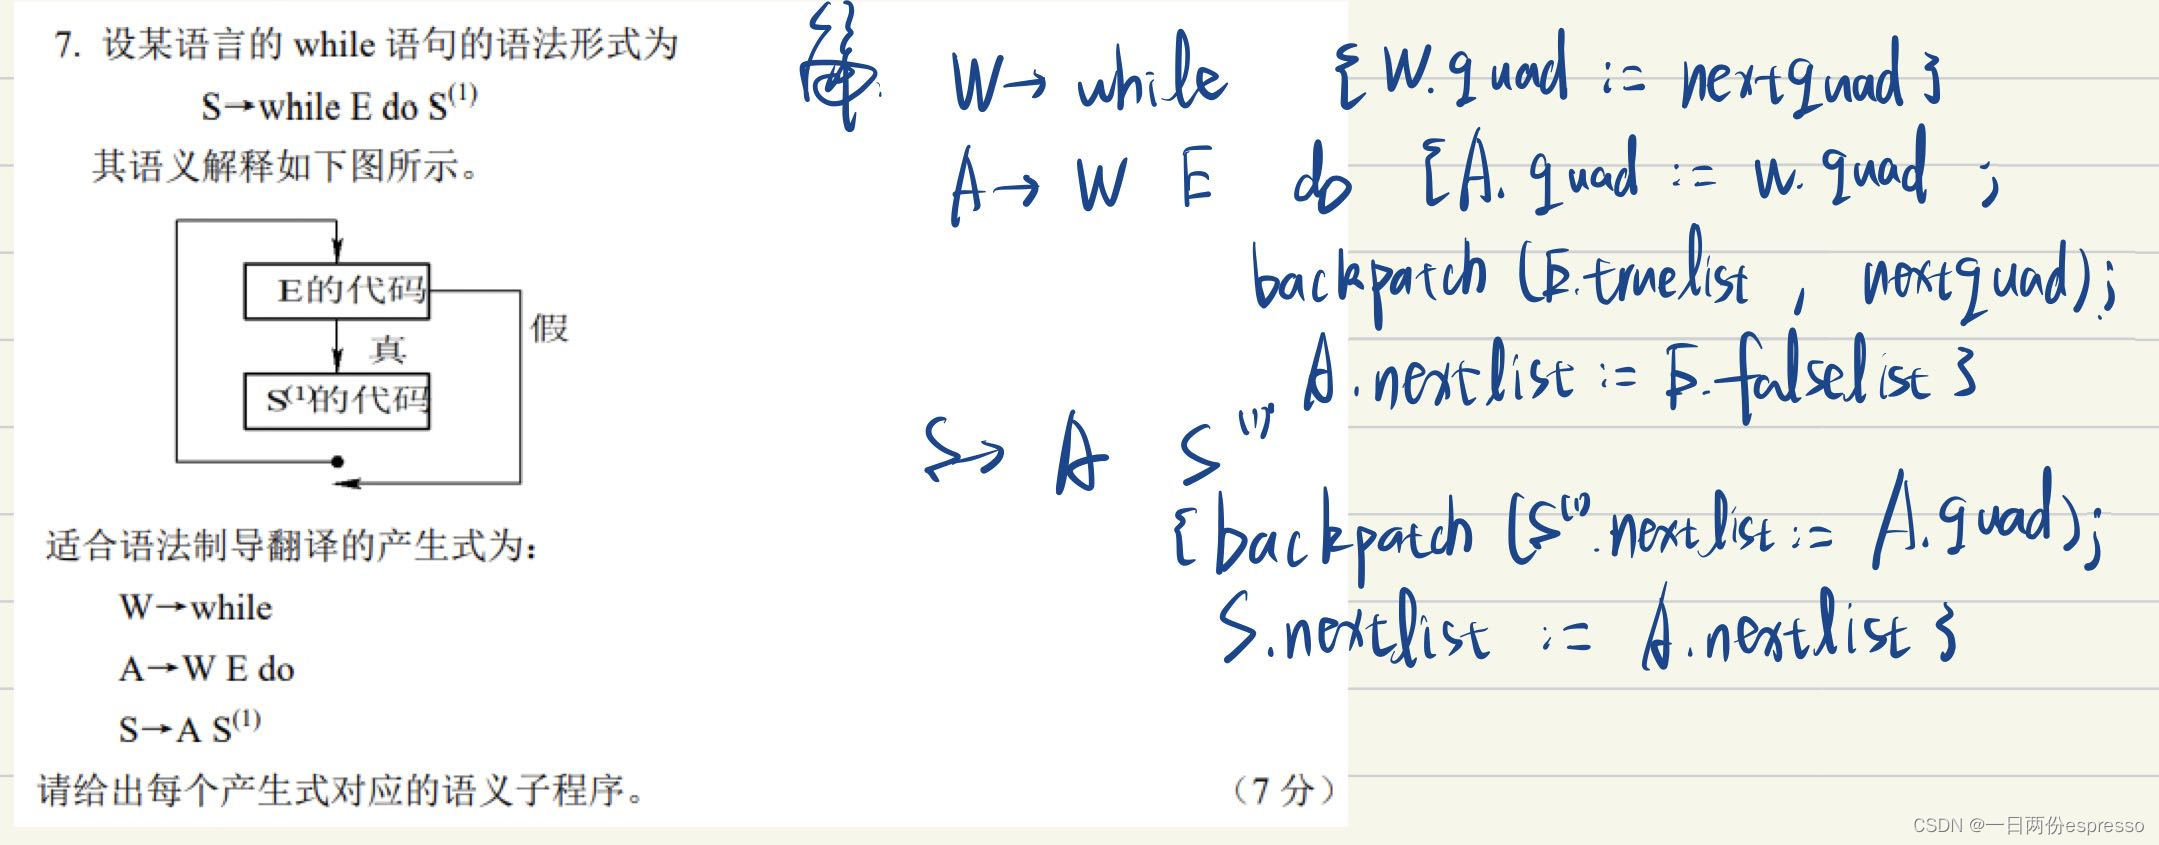 7. 设某语言的 while 语句的语法形式为
S→while E do S⁽¹⁾
其语义解释如下图所示。
E的代码
假
真
S⁽¹⁾的代码
适合语法制导翻译的产生式为：
W→while
A→W E do
S→A S⁽¹⁾
请给出每个产生式对应的语义子程序。
（7 分）
W→ while {W.quad := nextquad}
A→ W E do {A.quad := W.quad ;
backpatch (E.truelist , nextquad);
A.nextlist := E.falselist }
S→ A S⁽¹⁾
{backpatch (S⁽¹⁾.nextlist := A.quad);
S.nextlist := A.nextlist }
CSDN @一日两份espresso